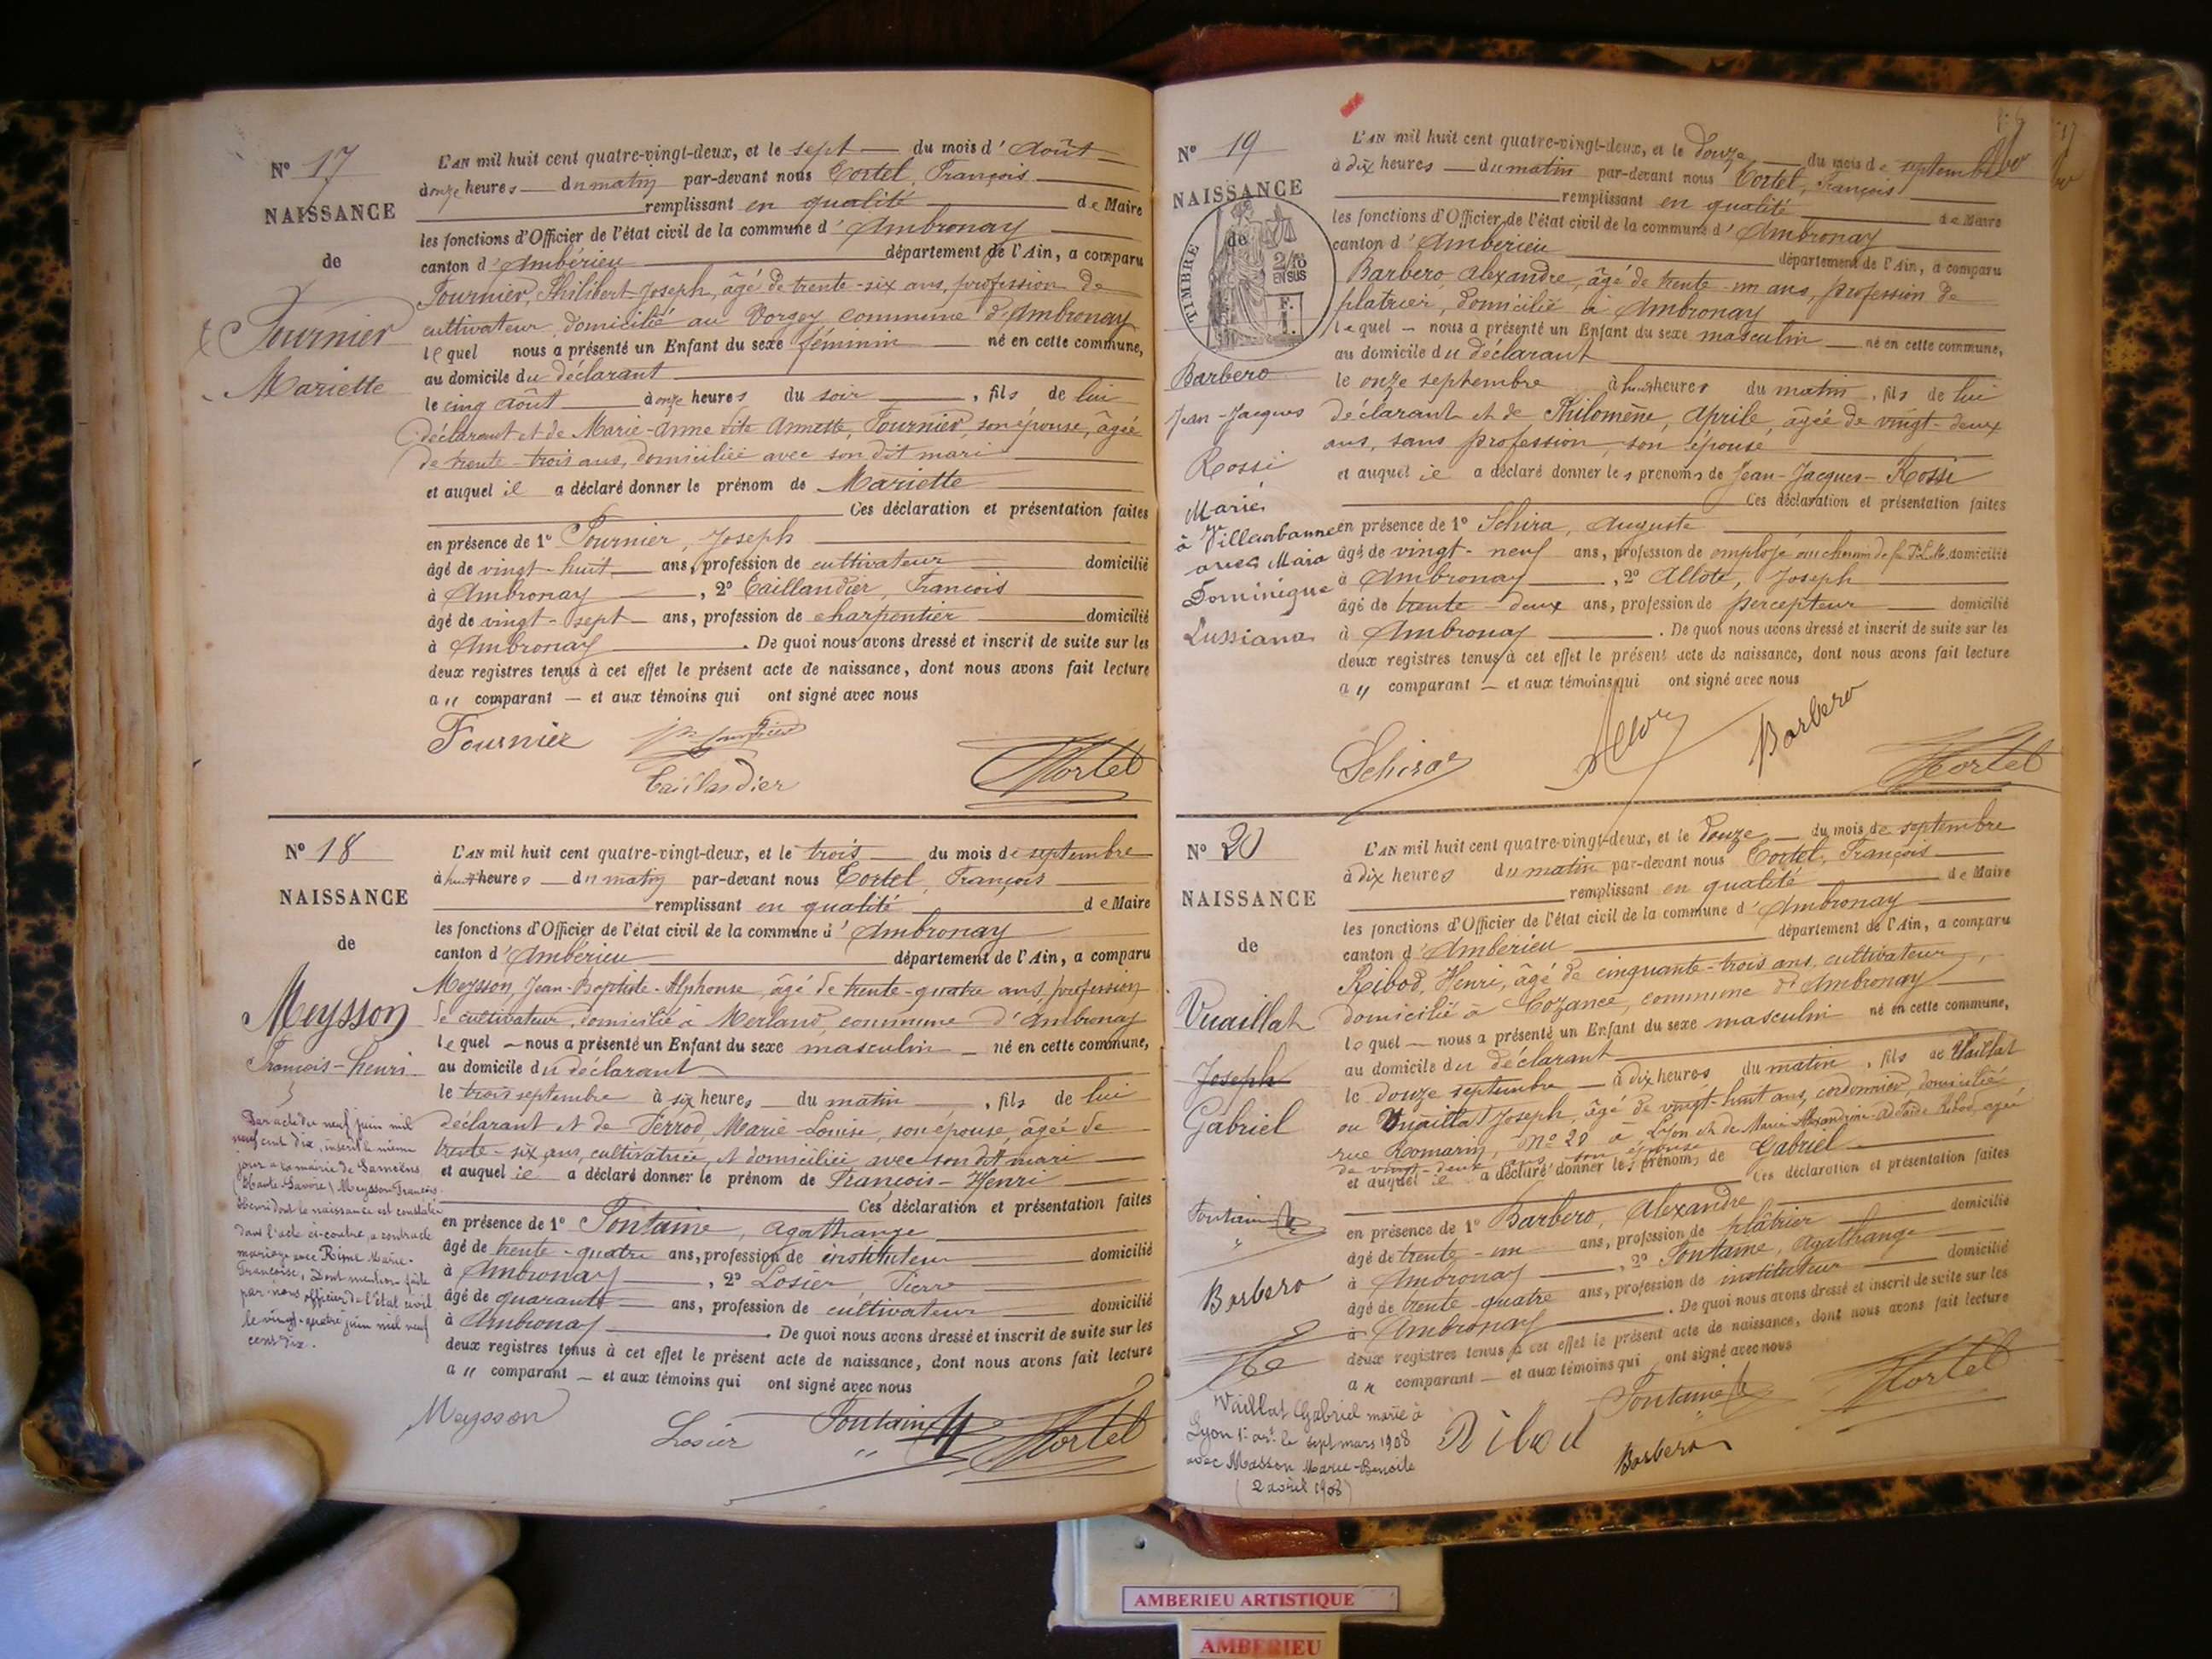 N° 17
NAISSANCE
de
Fournier
Mariette
L'AN mil huit cent quatre-vingt-deux, et le sept du mois d'Août
à onze heures du matin par-devant nous Tortel, François
remplissant en qualité de Maire
les fonctions d'Officier de l'état civil de la commune d'Ambronay
canton d'Ambérieu département de l'Ain, a comparu
Fournier, Philibert-Joseph, âgé de trente-six ans, profession de
cultivateur, domicilié au Vorgey commune d'Ambronay
lequel nous a présenté un Enfant du sexe féminin né en cette commune,
au domicile du déclarant
le cinq août à onze heures du soir, fils de lui
déclarant et de Marie-Anne dite Annette, Fournier, son épouse, âgée
de trente-trois ans, domiciliée avec son dit mari
et auquel il a déclaré donner le prénom de Mariette
Ces déclaration et présentation faites
en présence de 1° Fournier, Joseph
âgé de vingt-huit ans, profession de cultivateur domicilié
à Ambronay, 2° Taillandier, François
âgé de vingt-sept ans, profession de charpentier domicilié
à Ambronay. De quoi nous avons dressé et inscrit de suite sur les
deux registres tenus à cet effet le présent acte de naissance, dont nous avons fait lecture
a " comparant — et aux témoins qui ont signé avec nous
Fournier
Taillandier
Tortel
N° 18
NAISSANCE
de
Meysson
François-Henri
Par acte du neuf juin mil
neuf cent dix, inscrit le même
jour à la mairie de Samoëns
(Haute-Savoie) Meysson François
Henri dont la naissance est constatée
dans l'acte ci-contre, a contracté
mariage avec Rème Marie-
Françoise, Dont mention faite
par nous officier de l'état civil
le vingt-quatre juin mil neuf
cent dix.
L'AN mil huit cent quatre-vingt-deux, et le trois du mois de septembre
à huit heures du matin par-devant nous Tortel, François
remplissant en qualité de Maire
les fonctions d'Officier de l'état civil de la commune d'Ambronay
canton d'Ambérieu département de l'Ain, a comparu
Meysson, Jean-Baptiste-Alphonse, âgé de trente-quatre ans, profession
de cultivateur, domicilié à Merland, commune d'Ambronay
lequel — nous a présenté un Enfant du sexe masculin — né en cette commune,
au domicile du déclarant
le trois septembre à six heures du matin, fils de lui
déclarant et de Ferrod, Marie-Louise, son épouse, âgée de
trente-six ans, cultivatrice, et domiciliée avec son dit mari
et auquel il a déclaré donner le prénom de François-Henri
Ces déclaration et présentation faites
en présence de 1° Fontaine, Agathange
âgé de trente-quatre ans, profession de instituteur domicilié
à Ambronay, 2° Losier Pierre
âgé de quarante ans, profession de cultivateur domicilié
à Ambronay. De quoi nous avons dressé et inscrit de suite sur les
deux registres tenus à cet effet le présent acte de naissance, dont nous avons fait lecture
a " comparant — et aux témoins qui ont signé avec nous
Meysson
Losier
Fontaine
Tortel
N° 19
NAISSANCE
de
TIMBRE
2/10
EN SUS
Barbero
Jean-Jacques
Rossi
Marié
à Villeurbanne
avec Maria
Dominique
Lussiana
L'AN mil huit cent quatre-vingt-deux, et le douze du mois de septembre
à dix heures du matin par-devant nous Tortel, François
remplissant en qualité de Maire
les fonctions d'Officier de l'état civil de la commune d'Ambronay
canton d'Ambérieu département de l'Ain, a comparu
Barbero, Alexandre, âgé de trente-un ans, profession de
plâtrier, domicilié à Ambronay
lequel — nous a présenté un Enfant du sexe masculin — né en cette commune,
au domicile du déclarant
le onze septembre à heures du matin, fils de lui
déclarant et de Philomène, Aprile, âgée de vingt-deux
ans, sans profession, son épouse
et auquel il a déclaré donner les prénoms de Jean-Jacques-Rossi
Ces déclaration et présentation faites
en présence de 1° Schira, Auguste
âgé de vingt-neuf ans, profession de employé au chemin de fer P.L.M. domicilié
à Ambronay, 2° Allote, Joseph
âgé de trente-deux ans, profession de percepteur domicilié
à Ambronay. De quoi nous avons dressé et inscrit de suite sur les
deux registres tenus à cet effet le présent acte de naissance, dont nous avons fait lecture
a " comparant — et aux témoins qui ont signé avec nous
Schira
Barbero
Tortel
N° 20
NAISSANCE
de
Vuaillat
Joseph
Gabriel
Fontaine
Barbero
Vaillat Gabriel marié à
Lyon 1er art le sept mars 1908
avec Masson Marie-Benoîte
(2 avril 1908)
L'AN mil huit cent quatre-vingt-deux, et le douze du mois de septembre
à dix heures du matin par-devant nous Tortel, François
remplissant en qualité de Maire
les fonctions d'Officier de l'état civil de la commune d'Ambronay
canton d'Ambérieu département de l'Ain, a comparu
Ribod, Henri, âgé de cinquante-trois ans, cultivateur,
domicilié à Cozance, commune d'Ambronay
lequel — nous a présenté un Enfant du sexe masculin né en cette commune,
au domicile du déclarant
le douze septembre — à dix heures du matin, fils de Vaillat
ou Vuaillat Joseph, âgé de vingt-huit ans, cordonnier, domicilié
rue Romarin, N° 20 à Lyon et de Marie Alexandrine-Adélaïde Ribod, agée
de vingt-deux ans, son épouse
et auquel il a déclaré donner les prénoms de Gabriel
Ces déclaration et présentation faites
en présence de 1° Barbero, Alexandre
âgé de trente-un ans, profession de plâtrier domicilié
à Ambronay, 2° Fontaine, Agathange
âgé de trente-quatre ans, profession de instituteur domicilié
à Ambronay. De quoi nous avons dressé et inscrit de suite sur les
deux registres tenus à cet effet le présent acte de naissance, dont nous avons fait lecture
a " comparant — et aux témoins qui ont signé avec nous
Ribod
Fontaine
Barbero
Tortel
AMBERIEU ARTISTIQUE
AMBERIEU